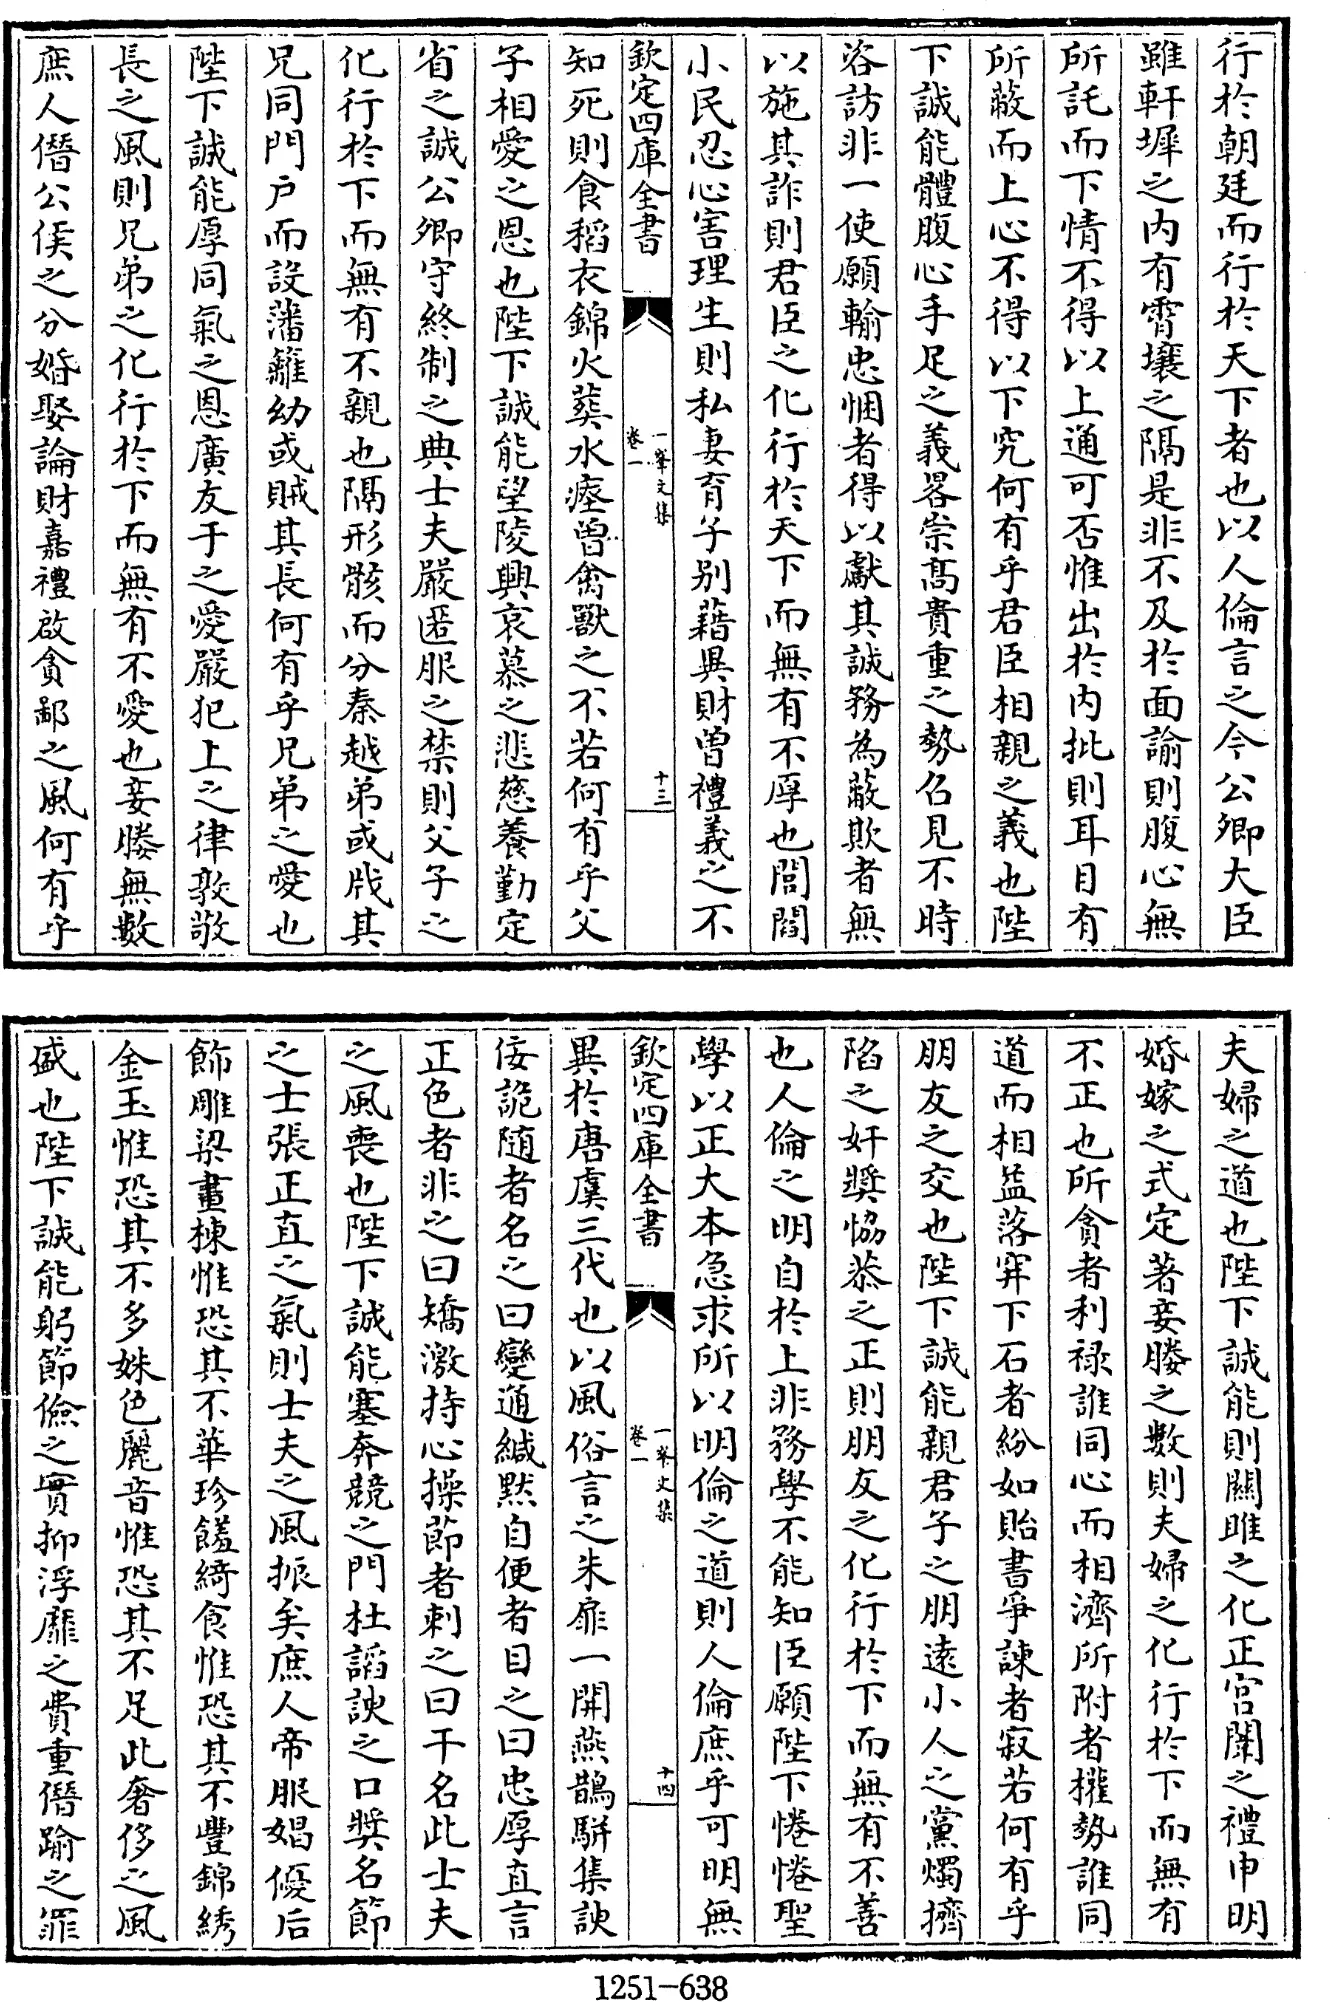 行於朝廷而行於天下者也以人倫言之今公卿大臣
雖軒墀之内有霄壤之隔是非不及於面諭則腹心無
所託而下情不得以上通可否惟出於内批則耳目有
所蔽而上心不得以下究何有乎君臣相親之義也陛
下誠能體腹心手足之義畧崇髙貴重之勢召見不時
咨訪非一使願輸忠悃者得以獻其誠務為蔽欺者無
以施其詐則君臣之化行於天下而無有不厚也閭閻
小民忍心害理生則私妻育子别藉異財曽禮義之不
欽定四庫全書
一峯文集
卷一
十三
知死則食稻衣錦火葬水瘞曽禽獸之不若何有乎父
子相愛之恩也陛下誠能望陵興哀慕之悲慈養勤定
省之誠公卿守終制之典士夫嚴匿服之禁則父子之
化行於下而無有不親也隔形骸而分秦越弟或戕其
兄同門戶而設藩籬幼或賊其長何有乎兄弟之愛也
陛下誠能厚同氣之恩廣友于之愛嚴犯上之律敦敬
長之風則兄弟之化行於下而無有不愛也妾媵無數
庶人僭公侯之分婚娶論財嘉禮啟貪鄙之風何有乎
夫婦之道也陛下誠能則關雎之化正宫闈之禮申明
婚嫁之式定著妾媵之數則夫婦之化行於下而無有
不正也所貪者利禄誰同心而相濟所附者權勢誰同
道而相益落穽下石者紛如貽書爭諫者寂若何有乎
朋友之交也陛下誠能親君子之朋遠小人之黨燭擠
陷之奸奬協恭之正則朋友之化行於下而無有不善
也人倫之明自於上非務學不能知臣願陛下惓惓聖
學以正大本急求所以明倫之道則人倫庶乎可明無
欽定四庫全書
一峯文集
卷一
十四
異於唐虞三代也以風俗言之朱扉一開燕鵲駢集諛
佞詭随者名之曰變通緘默自便者目之曰忠厚直言
正色者非之曰矯激持心操節者刺之曰干名此士夫
之風喪也陛下誠能塞奔競之門杜謟諛之口奬名節
之士張正直之氣則士夫之風振矣庶人帝服娼優后
飾雕梁畫棟惟恐其不華珍饈綺食惟恐其不豐錦綉
金玉惟恐其不多姝色麗音惟恐其不足此奢侈之風
盛也陛下誠能躬節儉之實抑浮靡之費重僭踰之罪
1251-638